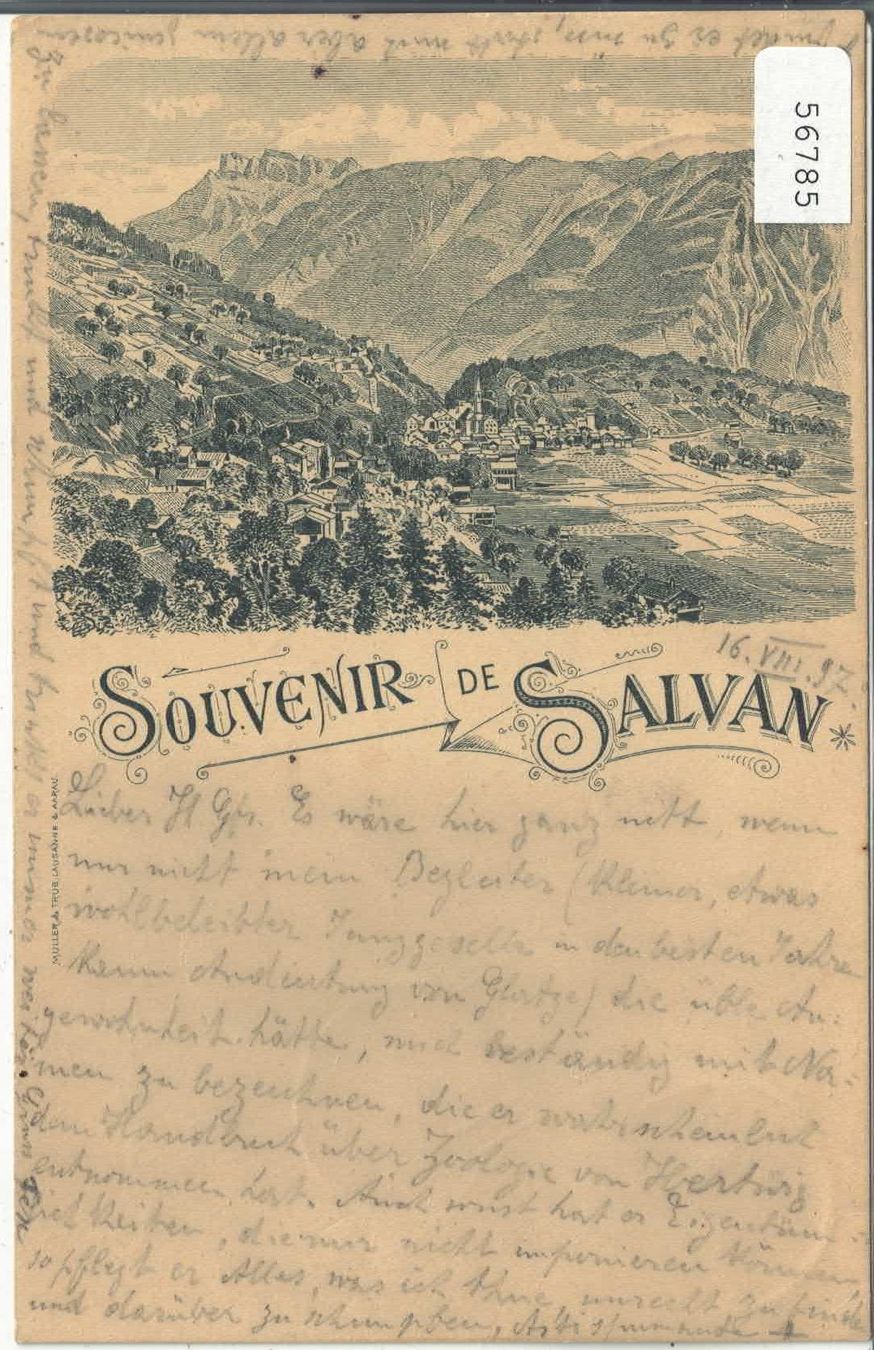 56785
SOUVENIR DE SALVAN
16. VIII. 97.
MÜLLER & TRÜB, LAUSANNE & AARAU.
Lieber H Gfr. Es wäre hier ganz nett, wenn
nur nicht mein Begleiter (kleiner, etwas
wohlbeleibter Junggeselle in den besten Jahre
kaum Andeutung von Glatze) die üble An:
gewohnheit hätte, mich beständig mit Na:
men zu bezeichnen, die er wahrscheinlich
dem Handbuch über Zoologie von Hertwig
entnommen hat. Auch sonst hat er Eigentüm
lichkeiten, die mir nicht imponieren können
so pflegt er Alles, was ich thue, unrecht zu finde
und darüber zu schimpfen,
zu lassen, und schimpft und immer weiter. Gruss
es zu thun, statt mit aber allem